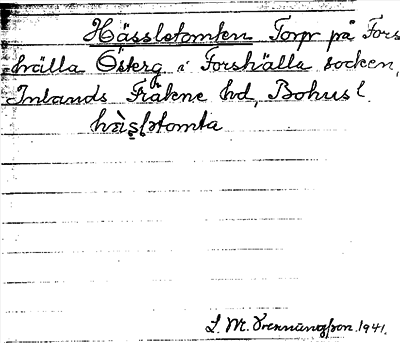 Hässletomten Torp på Fors
hälla Österg i Forshälla socken,
Inlands Fräkne hd, Bohusl.
hà̤slətomta
L. M. Svenningson. 1941.